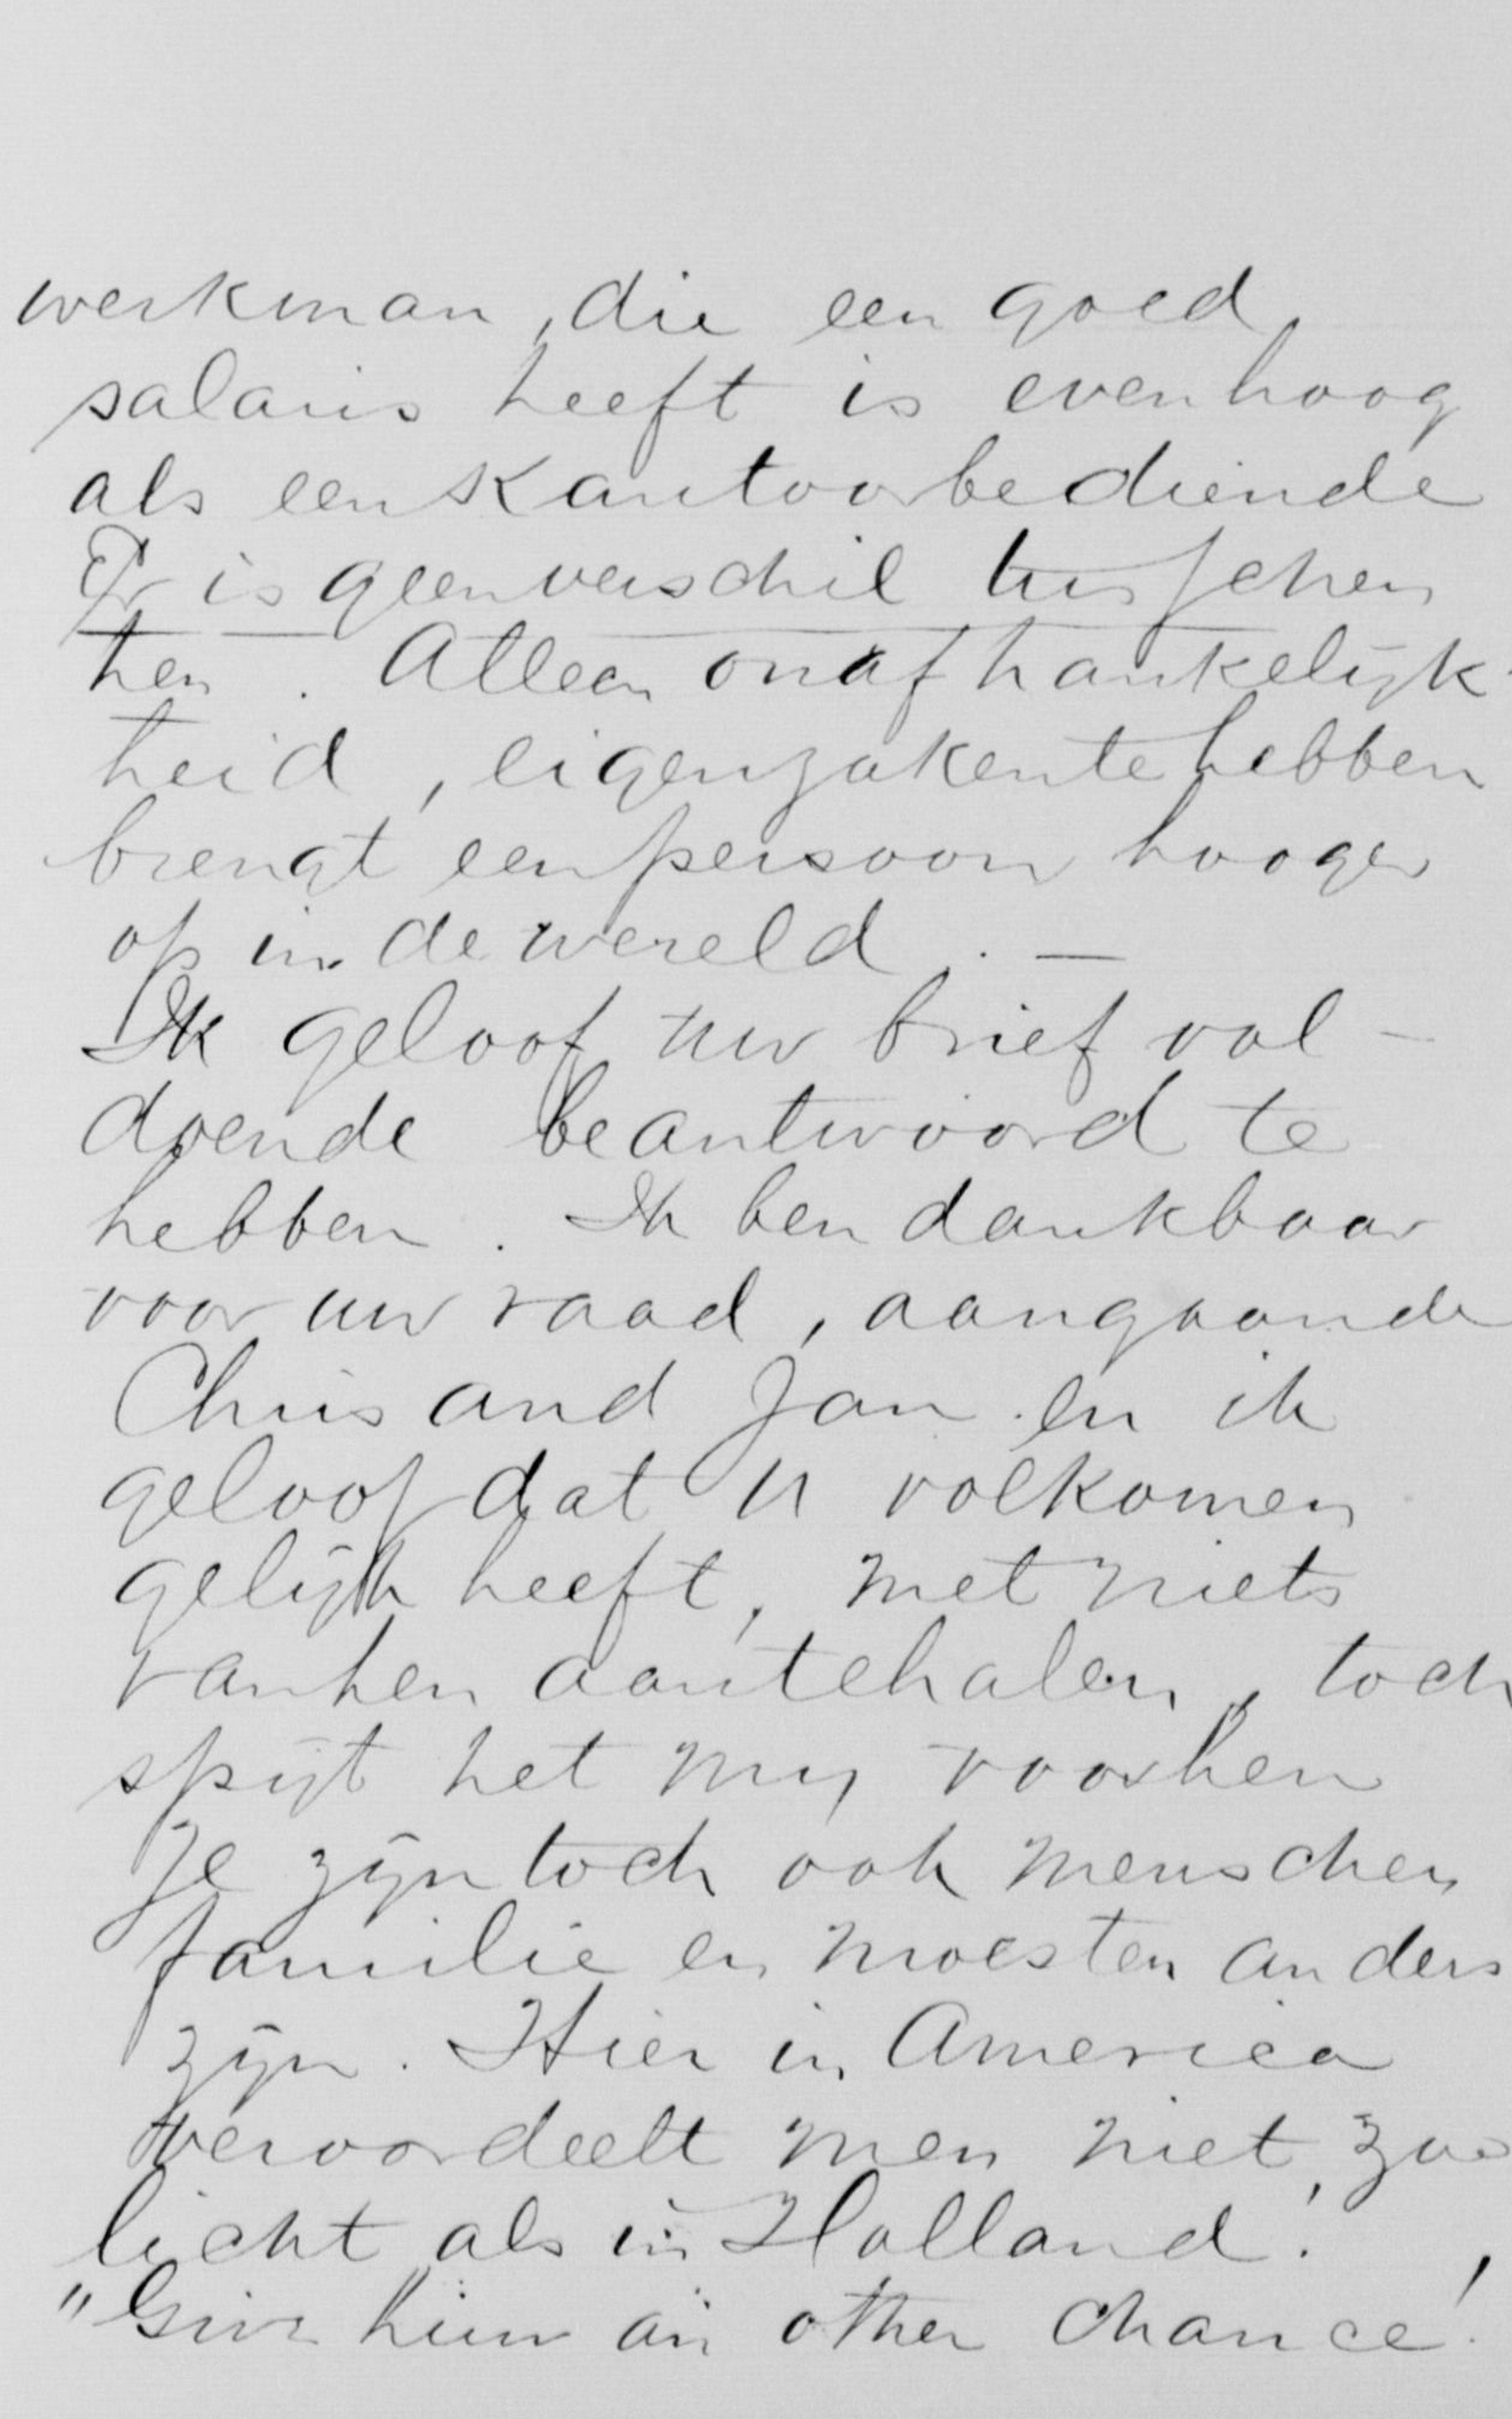 werkman, die een goed
salaris heeft is even hoog
als een kantoorbediende
Er is geen verschil tusschen
hen. Alleen onafhankelijk-
heid, eigen zaken te hebben
brengt een persoon hooger
op in de wereld. —
Ik geloof uw brief vol-
doende beantwoord te
hebben. Ik ben dankbaar
voor uw raad, aangaande
Chris and Jan en ik
geloof dat U volkomen
gelijk heeft, met niets
van hen aantehalen, toch
spijt het mij voor hen
Ze zijn toch ook menschen
familie en moesten anders
zijn. Hier in America
veroordeelt men niet, zoo
licht als in Holland!
"Give him an other chance!